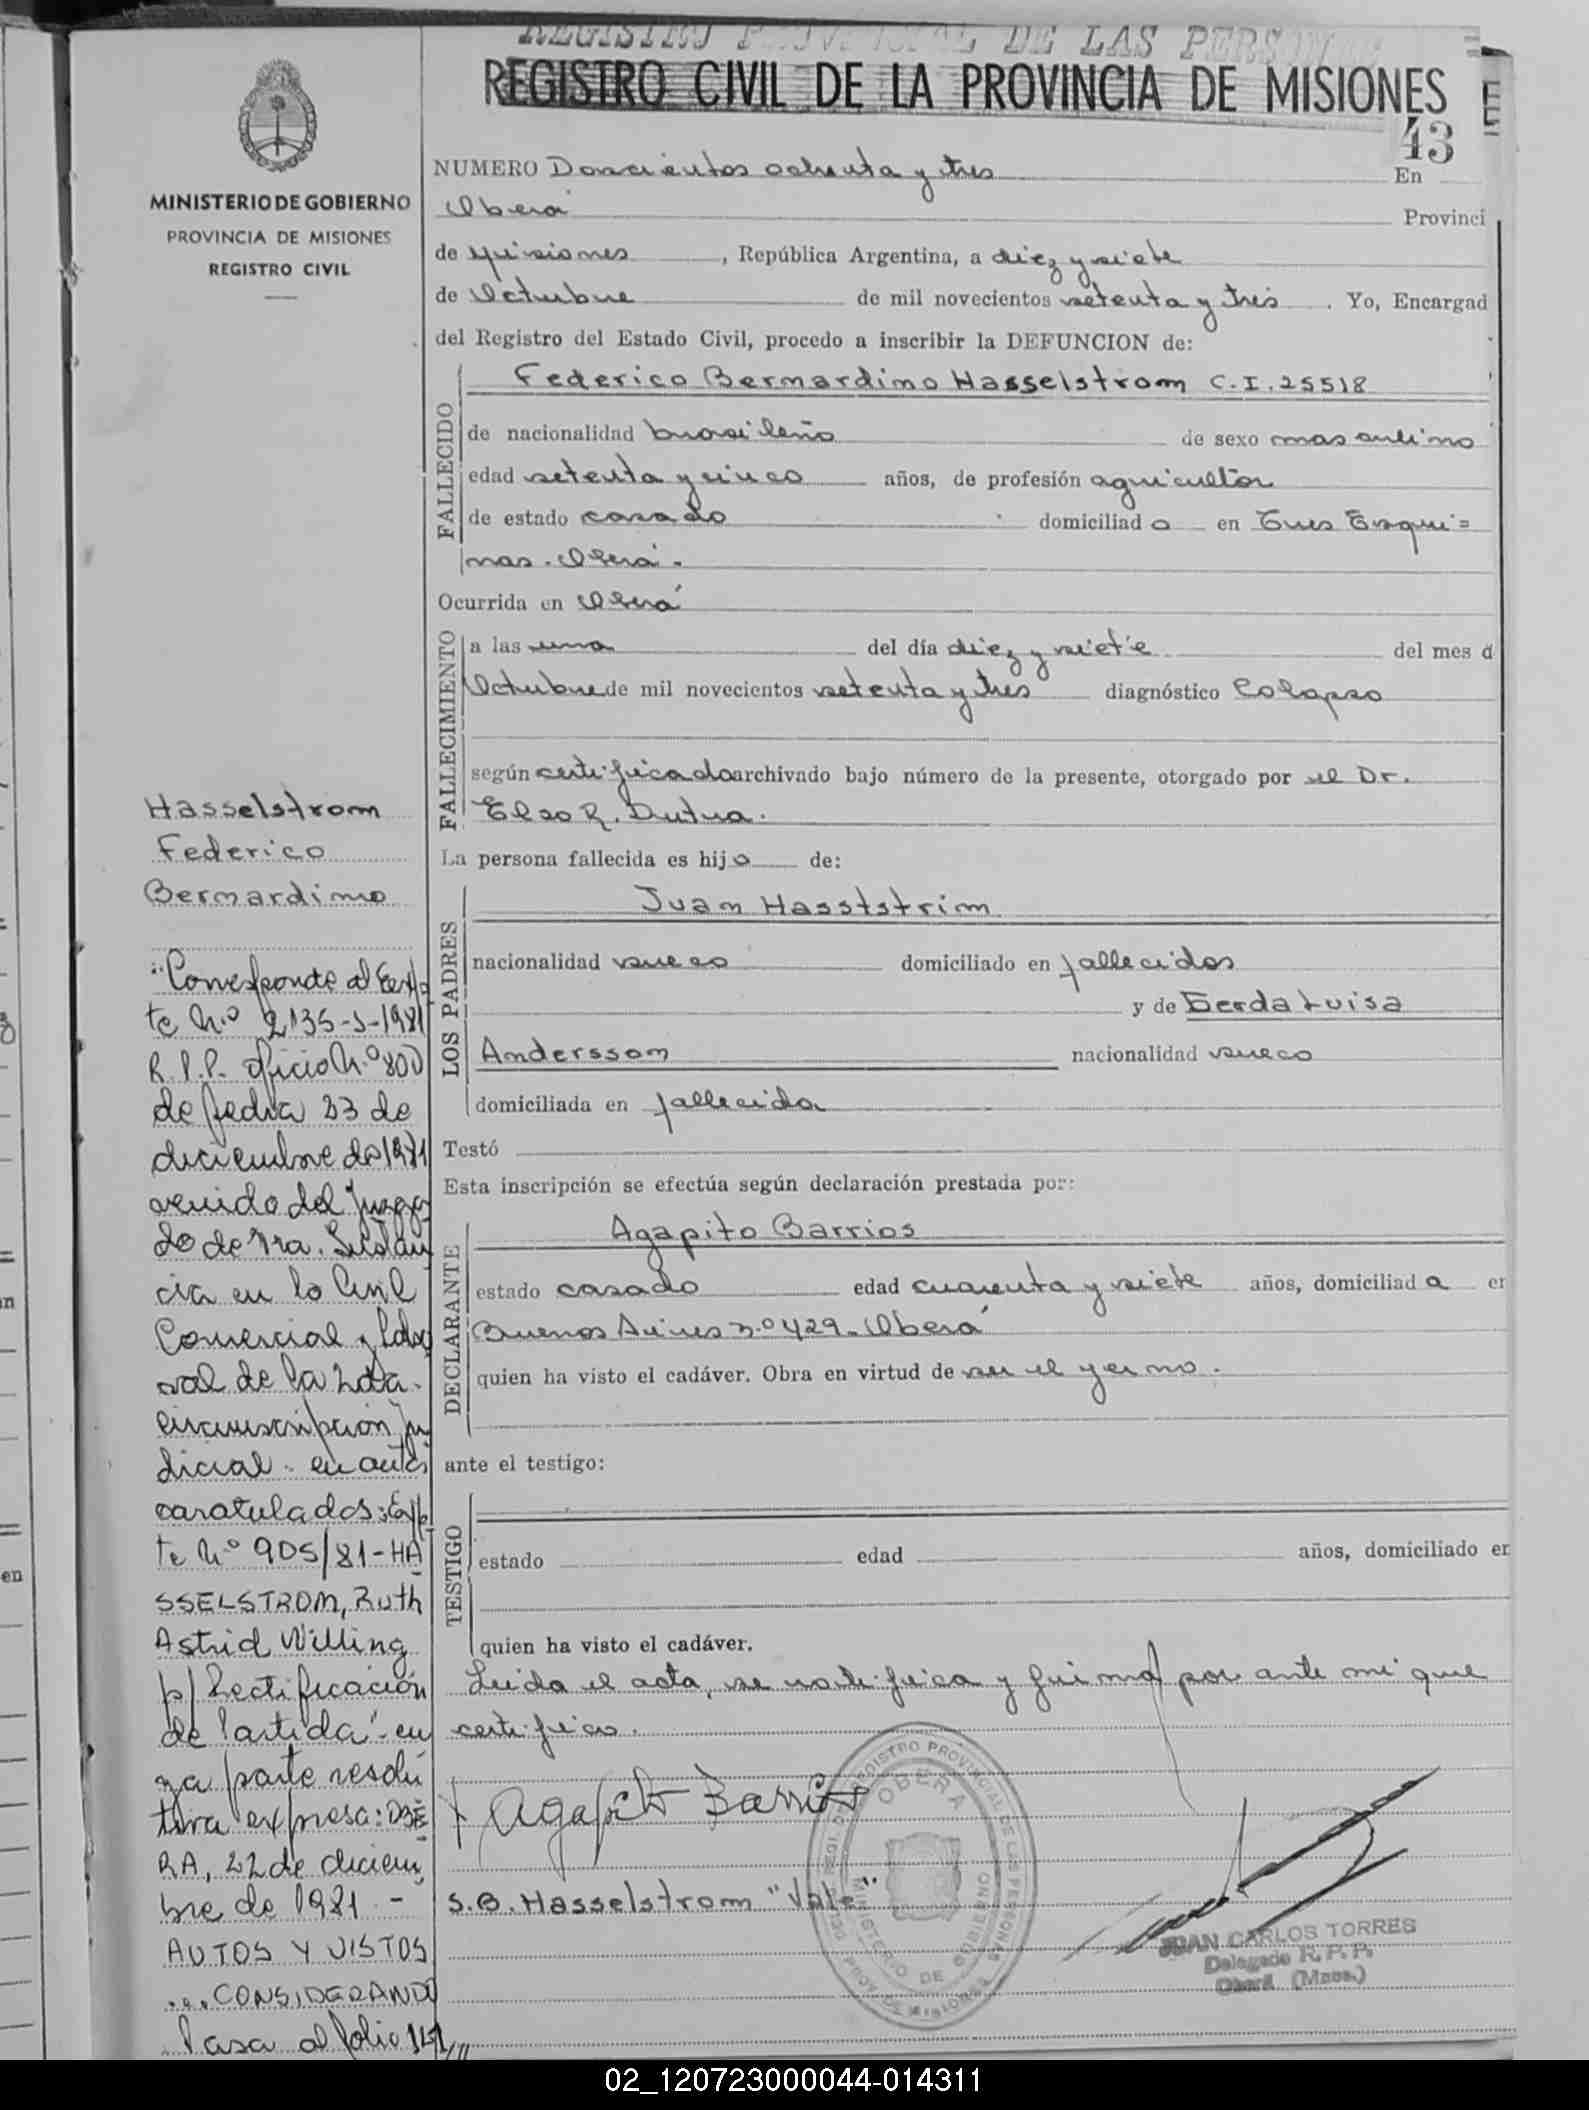 REGISTRO PROVINCIAL DE LAS PERSONAS
REGISTRO CIVIL DE LA PROVINCIA DE MISIONES
43
MINISTERIO DE GOBIERNO
PROVINCIA DE MISIONES
REGISTRO CIVIL
NUMERO Doscientos ochenta y tres En
Oberá Provinci
de Misiones , República Argentina, a diez y siete
de Octubre de mil novecientos setenta y tres . Yo, Encargad
del Registro del Estado Civil, procedo a inscribir la DEFUNCION de:
FALLECIDO
Federico Bernardino Hasselstrom C.I. 25518
de nacionalidad brasileño de sexo masculino
edad setenta y cinco años, de profesión agricultor
de estado casado domiciliad o en Tres Esqui=
nas. Oberá.
Ocurrida en Oberá
FALLECIMIENTO
a las una del día diez y siete del mes d
Octubre de mil novecientos setenta y tres diagnóstico Colapso
según certificado archivado bajo número de la presente, otorgado por el Dr.
Elso R. Dutra.
La persona fallecida es hijo de:
LOS PADRES
Juan Hasststrim
nacionalidad sueco domiciliado en fallecidos
y de Gerda Luisa
Andersson nacionalidad sueco
domiciliada en fallecida
Testó
Esta inscripción se efectúa según declaración prestada por:
DECLARANTE
Agapito Barrios
estado casado edad cuarenta y siete años, domiciliad a en
Buenos Aires n.º 429. Oberá
quien ha visto el cadáver. Obra en virtud de ser el yerno.
ante el testigo:
TESTIGO
estado edad años, domiciliado en
quien ha visto el cadáver.
Leida el acta, se ratifica y firma por ante mi que
certifico.
Agapito Barrios
S.B. Hasselstrom "Vale"
OBERA
MINISTERIO DE GOBIERNO
JUAN CARLOS TORRES
Delegado R. P. P.
Oberá (Mnes.)
Hasselstrom
Federico
Bernardino
"Corresponde al Exp
te N.º 2135-S-1981
R.P.P. oficio N.º 800
de fecha 23 de
diciembre de 1981
venido del Juzga
do de 1ra. Instan
cia en lo Civil
Comercial y Labo
ral de la 2da.
circunscripción Ju
dicial. en autos
caratulados: Exp
te N.º 905/81-HA
SSELSTROM, Ruth
Astrid Willing
p/ Rectificación
de Partida". cu
ya parte resolu
tiva expresa: OBE
RA, 22 de diciem
bre de 1981.-
AUTOS Y VISTOS
... CONSIDERANDO
Pasa al folio 141///
02_120723000044-014311